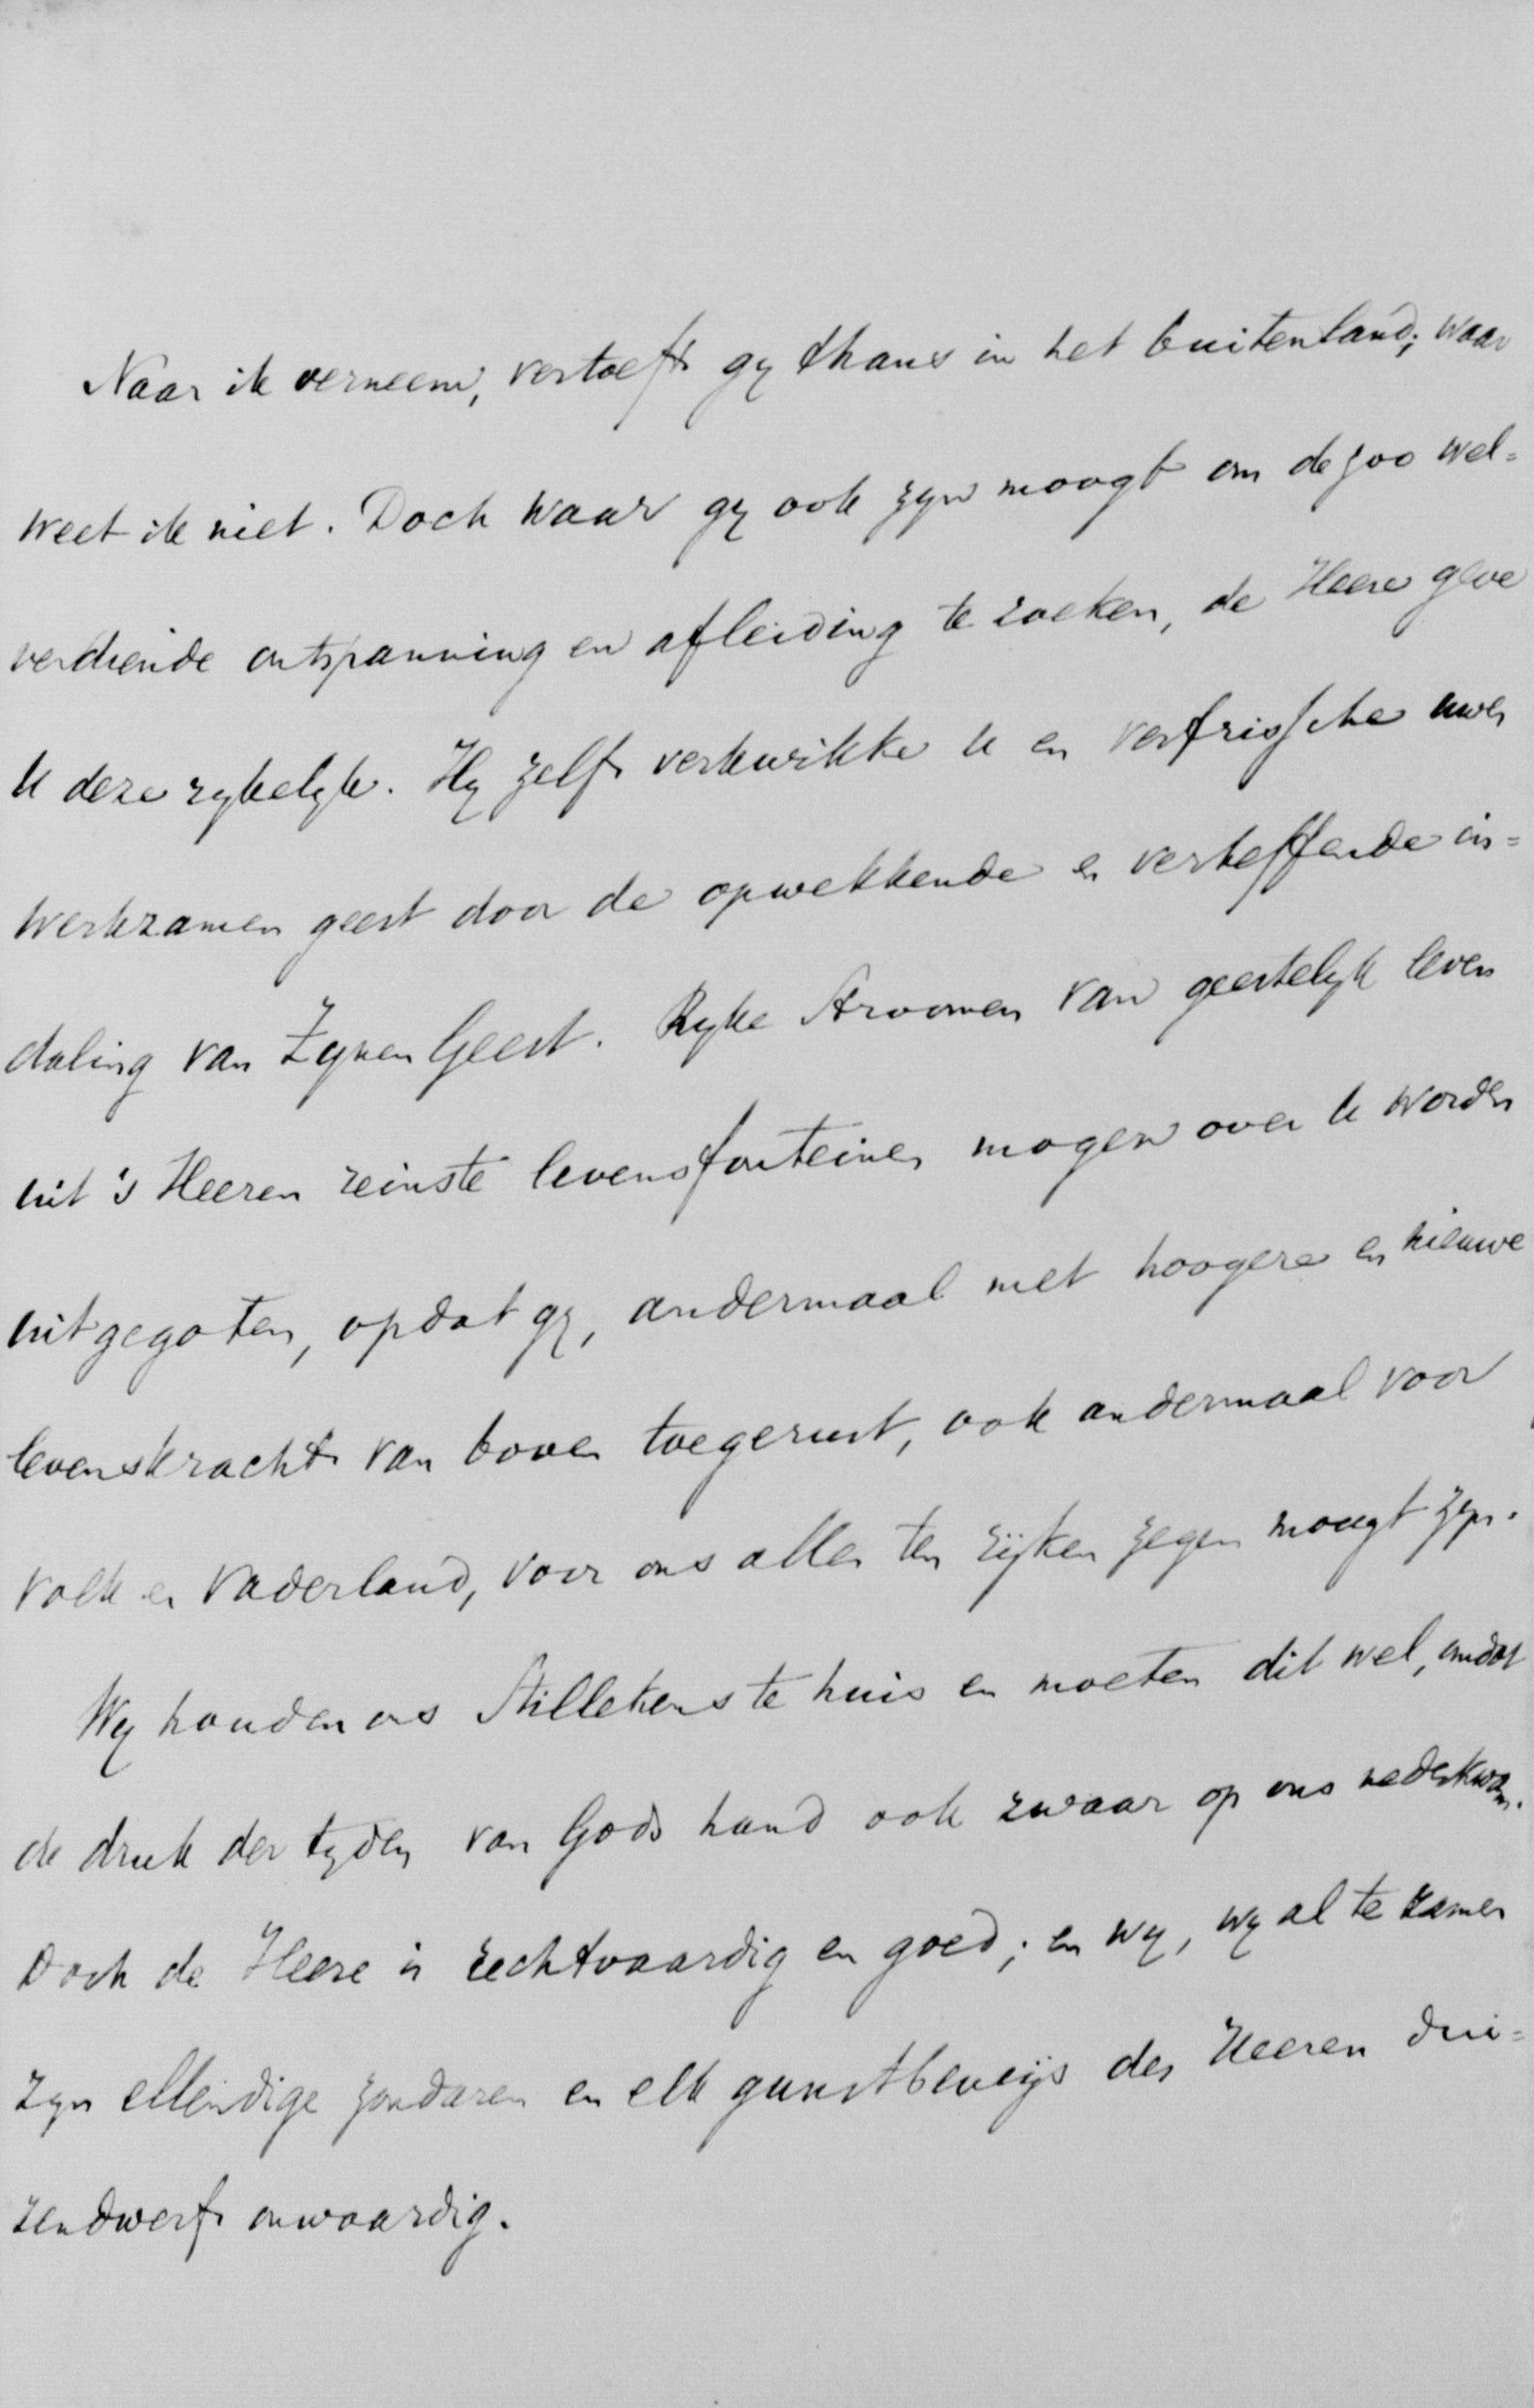 Naar ik verneem, vertoeft gy thans in het buitenland; waar
weet ik niet. Doch waar gy ook zyn moogt om de zoo wel=
verdiende ontspanning en afleiding te zoeken, de Heere geve
U deze rykelyk. Hy zelf verkwikke U en verfrissche uwen
werkzamen geest door de opwekkende en verheffende in=
daling van Zynen Geest. Ryke stroomen van geestelyk leven
uit 's Heeren reinste levensfonteinen mogen over U worden
uitgegoten, opdat gy, andermaal met hoogere en nieuwe
levenskracht van boven toegerust, ook andermaal voor
volk en vaderland, voor ons allen ten rijken zegen moogt zyn.
Wy houden ons stillekens te huis en moeten dit wel, omdat
de druk der tyden van Gods hand ook zwaar op ons nederkwam.
Doch de Heere is rechtvaardig en goed; en wy, wy al te zamen
zyn ellendige zondaren en elk gunstbewijs des Heeren dui=
zendwerf onwaardig.